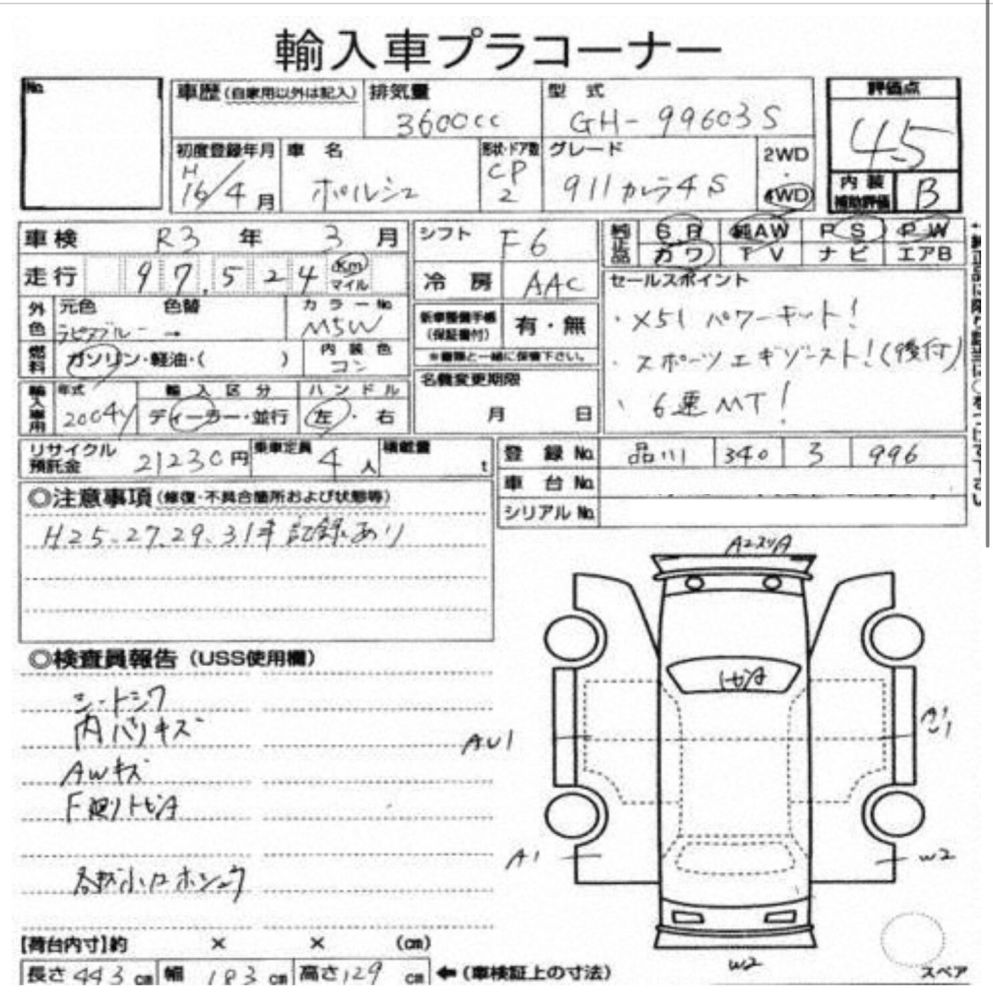 輸入車プラコーナー
No.
車歴 (自家用以外は記入) 排気量 3600cc 型式 GH-99603S
評価点 4.5
初度登録年月 H16/4月 車名 ポルシェ 形状・ドア数 CP 2 グレード 911カレラ4S 2WD・4WD
内装補助評価 B
車検 R3年3月 シフト F6 純正品 SR 純AW PS PW
カワ TV ナビ エアB
走行 97,524 Km マイル 冷房 AAC
セールスポイント
外色 元色 ラピスブルー 色替 → カラーNo. M5W
新車整備手帳(保証書付) 有・無
※書類と一緒に保管下さい。
・X51 パワーキット!
燃料 ガソリン・軽油・( ) 内装色 コン
・スポーツエキゾースト!(後付)
名義変更期限 月 日
・6速MT!
輸入車用 年式 2004y 輸入区分 ディーラー・並行 ハンドル 左・右
リサイクル預託金 21230円 乗車定員 4人 積載量 t
登録No. 品川 340 ろ 996
車台No.
シリアルNo.
◎注意事項(修復・不具合箇所および状態等)
H25、27、29、31年記録あり
◎検査員報告(USS使用欄)
シートシワ
内ハリキズ
AWキズ
F廻りトビA
各部小ロホシュウ
A2スリA
トビA
AU1
A1
A1
W2
W2
スペア
【荷台内寸】約 × × (cm)
長さ 443 cm 幅 183 cm 高さ 129 cm ←(車検証上の寸法)